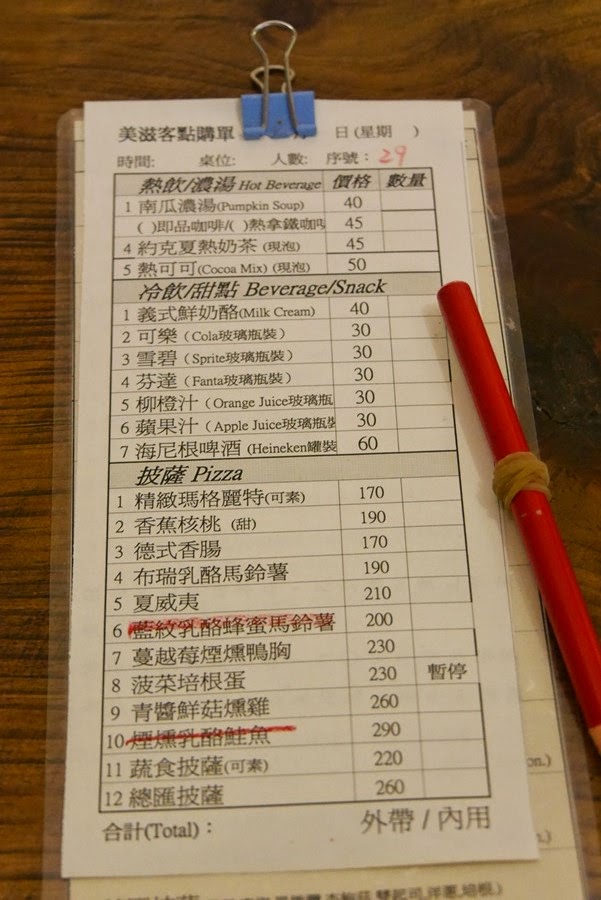 美滋客點購單 日(星期 )
時間: 桌位: 人數: 序號: 29
熱飲/濃湯 Hot Beverage 價格 數量
1 南瓜濃湯(Pumpkin Soup) 40
( )即品咖啡/( )熱拿鐵咖啡 45
4 約克夏熱奶茶(現泡) 45
5 熱可可(Cocoa Mix) (現泡) 50
冷飲/甜點 Beverage/Snack
1 義式鮮奶酪(Milk Cream) 40
2 可樂(Cola玻璃瓶裝) 30
3 雪碧(Sprite玻璃瓶裝) 30
4 芬達(Fanta玻璃瓶裝) 30
5 柳橙汁(Orange Juice玻璃瓶 30
6 蘋果汁(Apple Juice玻璃瓶裝 30
7 海尼根啤酒(Heineken罐裝 60
披薩 Pizza
1 精緻瑪格麗特(可素) 170
2 香蕉核桃 (甜) 190
3 德式香腸 170
4 布瑞乳酪馬鈴薯 190
5 夏威夷 210
6 藍紋乳酪蜂蜜馬鈴薯 200
7 蔓越莓煙燻鴨胸 230
8 菠菜培根蛋 230 暫停
9 青醬鮮菇燻雞 260
10 煙燻乳酪鮭魚 290
11 蔬食披薩(可素) 220
12 總匯披薩 260
合計(Total): 外帶 / 內用